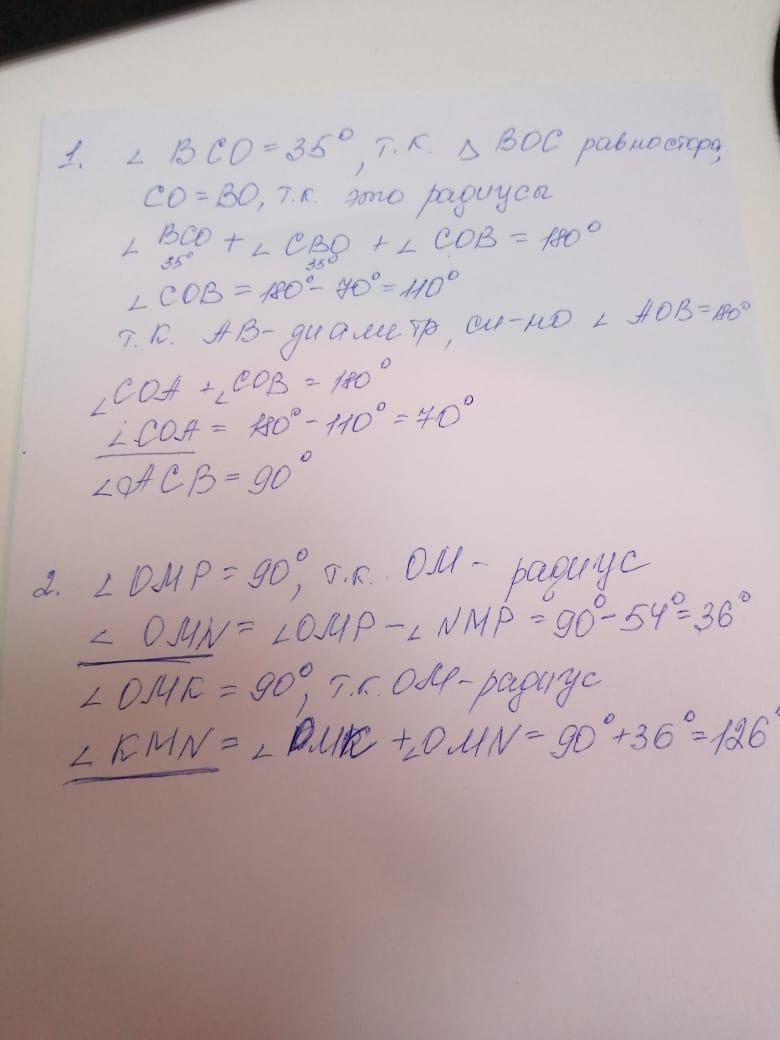 1. ∠ BCO = 35°, т.к. △ BOC равностор,
CO = BO, т.к. это радиусы
∠ BCO + ∠ CBO + ∠ COB = 180°
35° 35°
∠ COB = 180° - 70° = 110°
т.к. AB - диаметр, сл-но ∠ AOB = 180°
∠COA + ∠COB = 180°
∠COA = 180° - 110° = 70°
∠ACB = 90°
2. ∠ OMP = 90°, т.к. OM - радиус
∠ OMN = ∠OMP - ∠ NMP = 90° - 54° = 36°
∠ OMK = 90°, т.к. OM - радиус
∠ KMN = ∠ OMK + ∠OMN = 90° + 36° = 126°